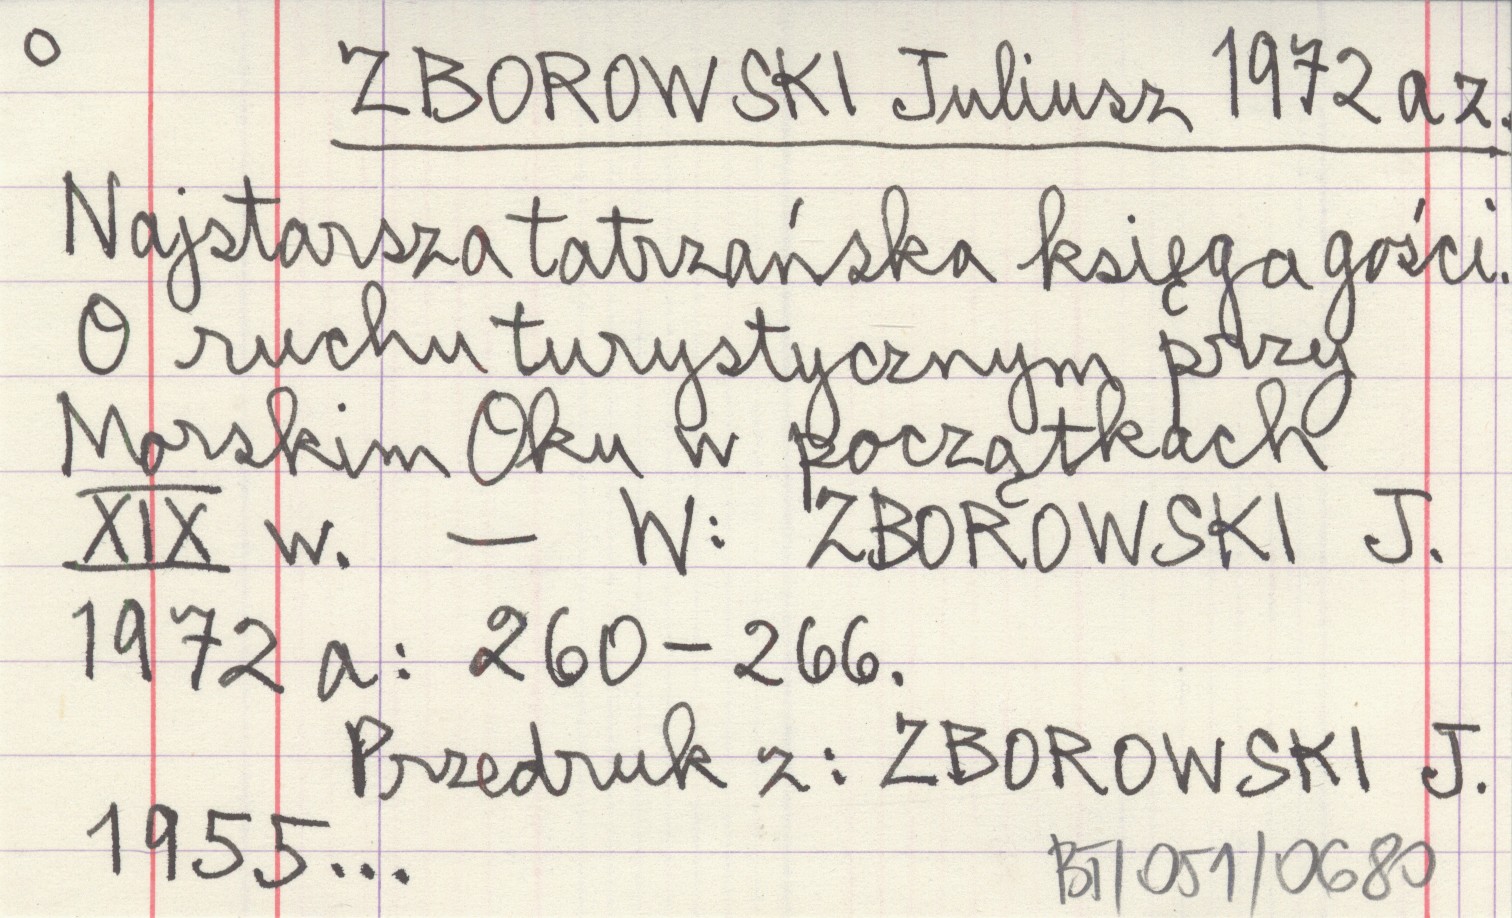 O ZBOROWSKI Juliusz 1972 a z.
Najstarsza tatrzańska księga gości.
O ruchu turystycznym przy
Morskim Oku w początkach
XIX w. — W: ZBOROWSKI J.
1972 a: 260-266.
Przedruk z: ZBOROWSKI J.
1955...
BT/051/0680